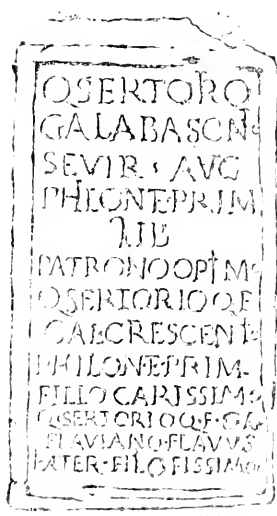 Q SERTORO
GAL ABASCN·
SEVIR · AVG
PHILONETPRIM
LIB
PATRONOOPTM·
Q SERTORIOQF
GALCRESCENT·
PHILONETPRIM·
FILIOCARISSIM·
Q·SERTORIOQ·F·GA·
FLAVIANO·FLAVVS
PATER·FILOPISSIMO